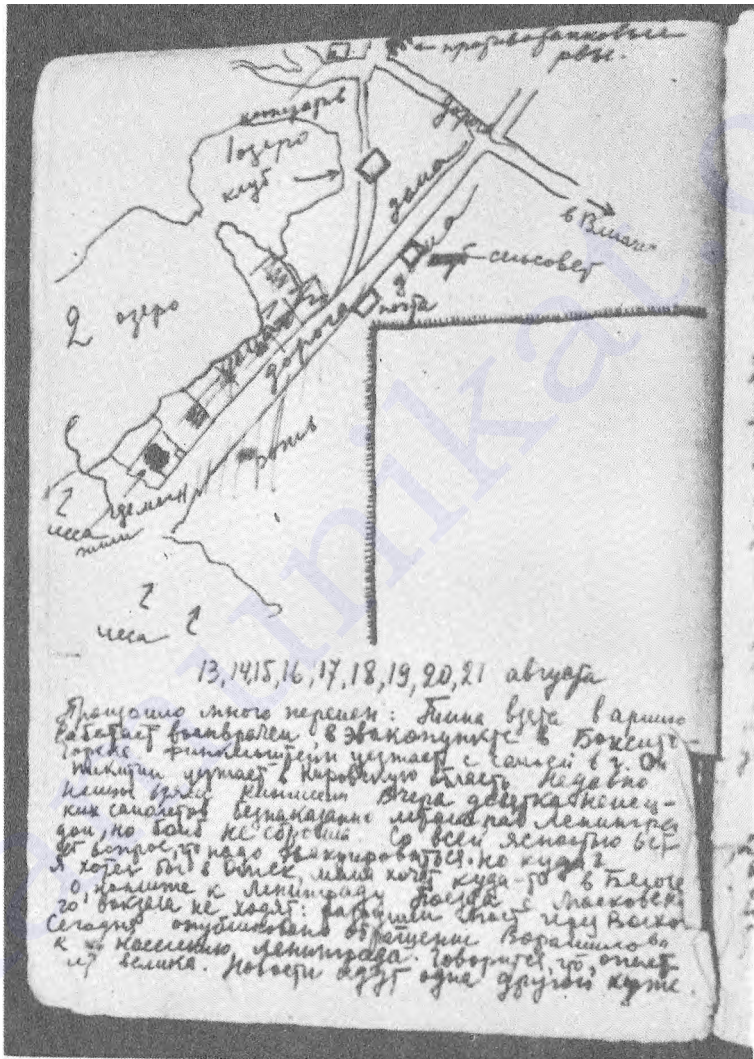 противотанковые
рвы.
дорога
1 озеро
клуб
дома
в
сельсовет
почта
2 озеро
дорога
рожь
где мы
жили
леса
леса
13, 14, 15, 16, 17, 18, 19, 20, 21 августа
Произошло много перемен: Тина взята в армию
Работает военврачем в эвакопункте в
Финкельштейн уезжает с семьей в г.
Никитин уезжает в Кировскую область Недавно
немцы взяли Вчера десятка немец-
ких самолетов безнаказанно над Ленингра
дом, но бомб не сбросили Со всей ясностью вст
ет вопрос, что надо эвакуироваться. но куда?
Я хотел бы в Омск, мама хочет куда-то в
поближе к Ленинграду Поезда с Московско
го вокзала не ходят: мост через
Сегодня опубликовано обращение Ворошилова
к населению Ленинграда. Говорится, что опасн
велика. Новости идут одна другой хуже.